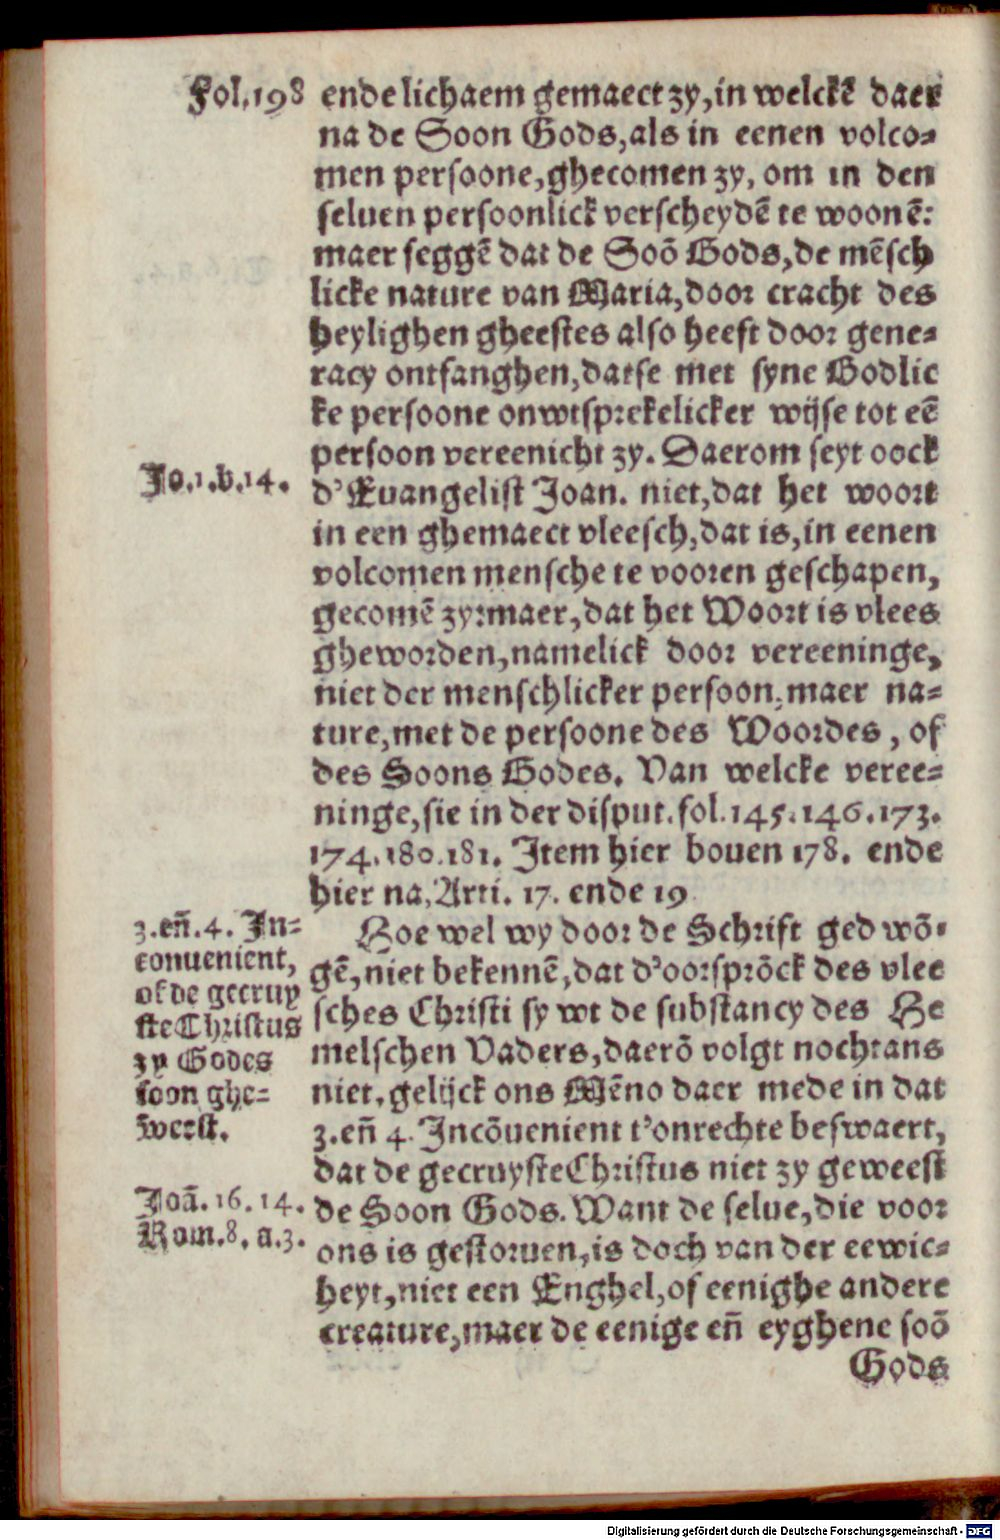 Fol.198
ende lichaem gemaect zy, in welckē daer
na de Soon Gods, als in eenen volco⸗
men persoone, ghecomen zy, om in den
seluen persoonlick verscheydē te woonē:
maer seggē dat de Soō Gods, de mēsch
licke nature van Maria, door cracht des
heylighen gheestes also heeft door gene⸗
racy ontfanghen, datse met syne Godlic
ke persoone onwtsprekelicker wijse tot eē
persoon vereenicht zy. Daerom seyt oock
Jo.1.b.14.
d'Euangelist Joan. niet, dat het woort
in een ghemaect vleesch, dat is, in eenen
volcomen mensche te vooren geschapen,
gecomē zy: maer, dat het Woort is vlees
gheworden, namelick door vereeninge,
niet der menschlicker persoon, maer na⸗
ture, met de persoone des Woordes, of
des Soons Godes. Van welcke veree⸗
ninge, sie in der disput. fol. 145. 146. 173.
174. 180. 181. Item hier bouen 178. ende
hier na, Arti. 17. ende 19
3. en̄. 4. In⸗
conuenient,
of de gecruy
ste Christus
zy Godes
soon ghe⸗
weest.
Hoe wel wy door de Schrift gedwō⸗
gē, niet bekennē, dat d'oorsprōck des vlee
sches Christi sy wt de substancy des He
melschen Vaders, daerō volgt nochtans
niet, gelijck ons Mēno daer mede in dat
3. en̄ 4. Incōuenient t'onrechte beswaert,
dat de gecruyste Christus niet zy geweest
Joā. 16. 14.
Rom. 8. a. 3.
de Soon Gods. Want de selue, die voor
ons is gestoruen, is doch van der eewic⸗
heyt, niet een Enghel, of eenighe andere
creature, maer de eenige en̄ eyghene soō
Gods
Digitalisierung gefördert durch die Deutsche Forschungsgemeinschaft - DFG